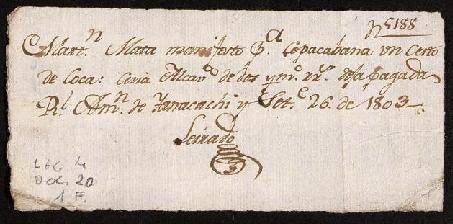 Nº 188
Marn Mata manifesto pa Copacabana un Cesto
de Coca: Cuia Alcava de dos ps rs dexa pagada
Rl Admn de Yanacachi y Sete 26 de 1803
LEG 4
DOC. 20
1 F.